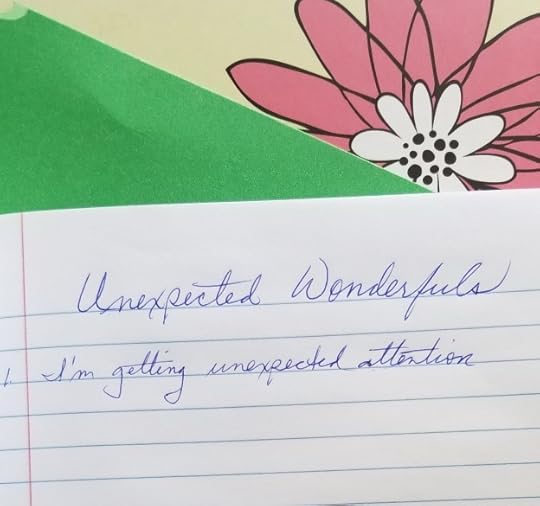 Unexpected Wonderfuls
1. I'm getting unexpected attention